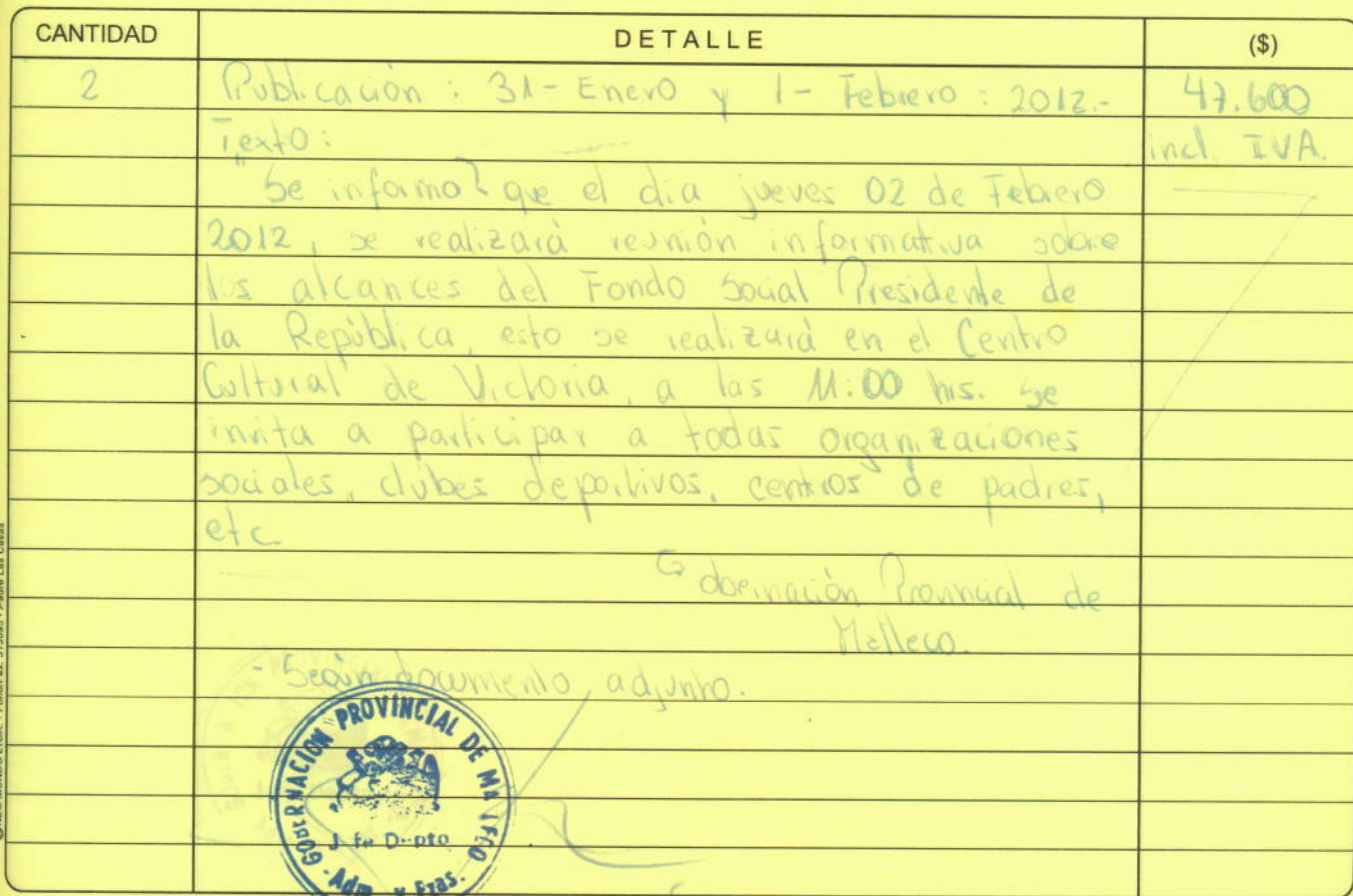 CANTIDAD DETALLE ($)
2 Publicación : 31 - Enero y 1 - Febrero : 2012.- 47.600
Texto: incl. IVA.
" Se informa que el día jueves 02 de Febrero
2012, se realizará reunión informativa sobre
los alcances del Fondo Social Presidente de
la República, esto se realizará en el Centro
Cultural de Victoria, a las 11:00 hrs. se
invita a participar a todas organizaciones
sociales, clubes deportivos, centros de padres,
etc
Gobernación Provincial de
Malleco.
- Según documento adjunto.
GOBERNACION PROVINCIAL DE MALLECO
Jefe Depto
Adm. y Fzas.